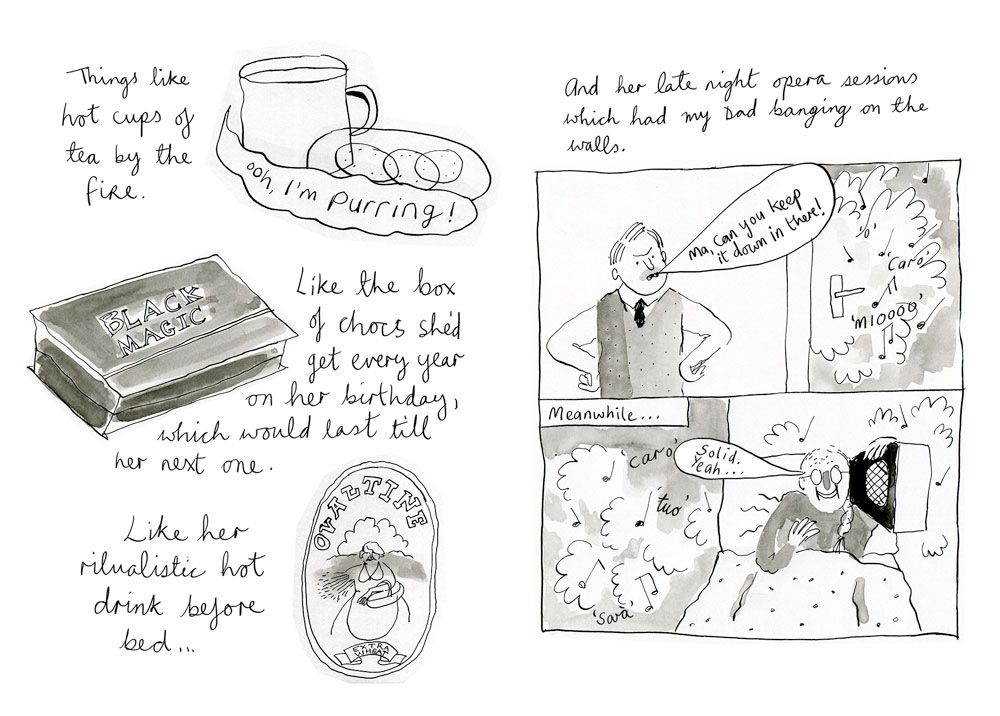 Things like
hot cups of
tea by the
fire.
ooh, I'm purring!
BLACK
MAGIC
Like the box
of chocs she'd
get every year
on her birthday,
which would last till
her next one.
Like her
ritualistic hot
drink before
bed...
OVALTINE
EXTRA
WHEAT
And her late night opera sessions
which had my Dad banging on the
walls.
Ma, can you keep
it down in there!
'o'
'caro'
'MIOOOO'
Meanwhile...
'caro'
'tuo'
'sara'
Solid.
Yeah...